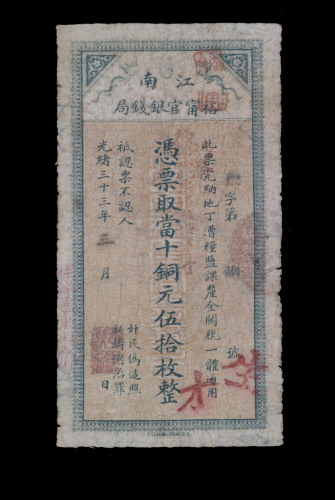 江南
裕甯官銀錢局
字第 號
此票完納地丁漕糧鹽課釐金關稅一體通用
憑票取當十銅元伍拾枚整
祗認票不認人
光緒三十三年 月 日
奸民偽造照
私鑄例治罪